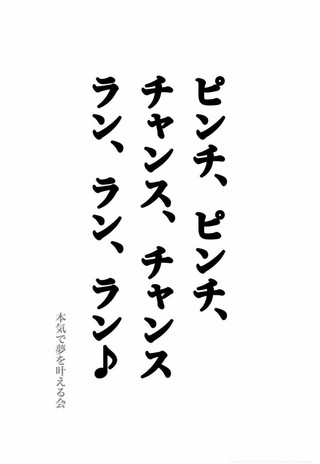 ピンチ、ピンチ、
チャンス、チャンス
ラン、ラン、ラン♪
本気で夢を叶える会